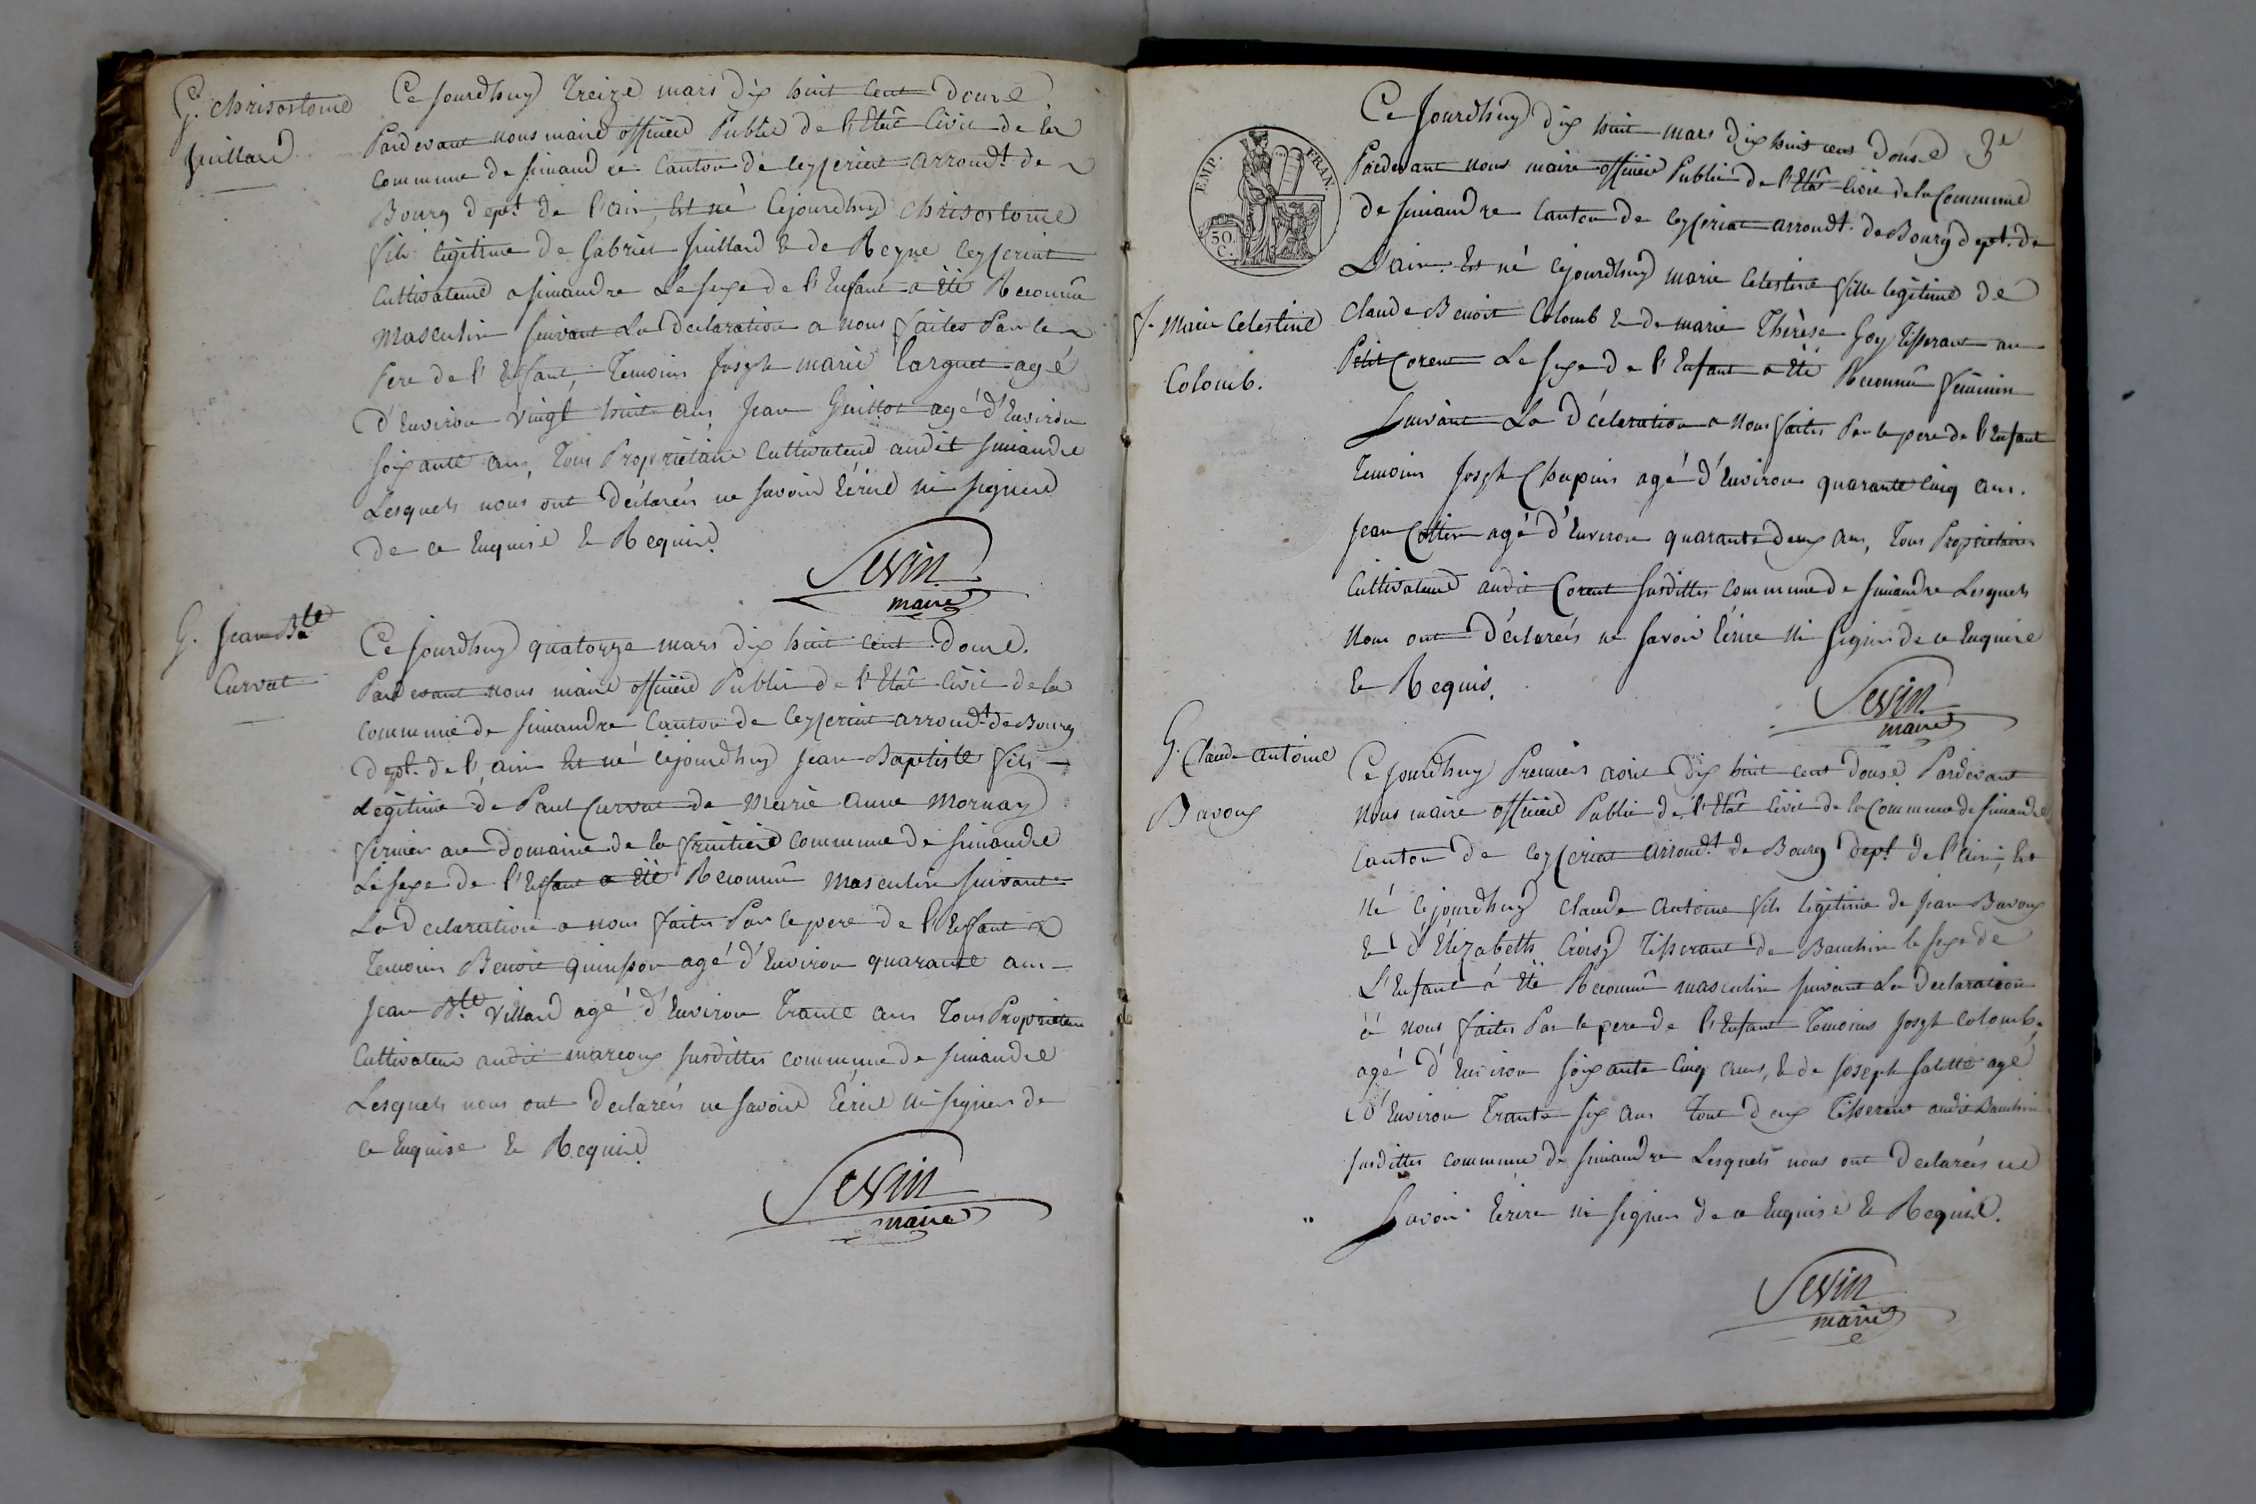 G. Chrisostome
Juillard
Ce Jourdhuy Treize mars dix huit Cent Douze
Pardevant nous maire officier Public de l'Etat Civil de la
Commune de Simandre Canton de Ceyzeriat arrondt. de
Bourg dept. de l'ain, Est né Cejourdhuy Chrisostome
fils légitime de Gabriel Juillard & de Reyne Ceyzeriat
Cultivateur a Simandre Le sexe de l'Enfant a été Reconnu
Masculin Suivant La Declaration a nous faites Par le
Pere de l'Enfant, Temoins Joseph marie Carguet agé
D'Environ vingt huit ans, Jean Guillot agé d'Environ
soixante ans, Tous Propriétaire Cultivateur audit Simandre
Lesquels nous ont Déclarés ne savoir Ecrire ni signer
De ce Enquise & Requise.
Sevin
maire
G. Jean Bte
Curvat
Ce Jourdhuy quatorze mars dix huit Cent Douze.
Pardevant nous maire officier Public de l'Etat Civil de la
Commune de Simandre Canton de Ceyzeriat arrondt. de Bourg
dept. de l'ain Est né cejourdhuy Jean Baptiste fils
Légitime de Paul Curvat de Marie Anne Mornay
fermier au domaine de la fruitiere Commune de Simandre
Le sexe de l'Enfant a été Reconnu Masculin Suivant
La Declaration a nous faites Par le pere de l'Enfant
Temoins Benoit Quinsson agé d'Environ quarante ans
Jean Bte Villard agé d'Environ Trante ans Tous Propriétaire
Cultivateur audit marcoux susdittes commune de Simandre
Lesquels nous ont Declarés ne savoir Ecrire ni signer de
ce Enquise & Requise
Sevin
maire
EMP. FRAN.
50
C.
Ce Jourdhuy dix huit mars dix huit cens Douse 3e
Pardevant nous maire officier Public de l'Etat Civil de la Commune
de Simandre Canton de Ceyzeriat arrondt. de Bourg dept. de
L'ain. Est né cejourdhuy marie Celestine fille légitime de
f. Marie Celestine
Colomb.
Claude Benoit Colomb & de marie Thérèse Goy Tisserant au
Petit Corent Le sexe de l'Enfant a été Reconnu féminin
Suivant La Déclaration a Nous faites Par le pere de l'Enfant
Temoins Joseph Chapuis agé d'Environ quarante Cinq ans.
Jean Cottin agé d'Environ quarante deux ans, Tous Proprietaires
Cultivateur audit Corent susdittes commune de Simandre Lesquels
Nous ont Déclarés ne savoir Ecrire ni signer de ce Enquise
& Requis.
Sevin
maire
G. Claude Antoine
Bavoux
Ce Jourdhuy Premier avril Dix huit cent Douse Pardevant
Nous maire officier Public de l'Etat Civil de la Commune de Simandre
Canton de Ceyzeriat arrondt. de Bourg dept. de l'ain, Est
Né Cejourdhuy Claude Antoine fils légitime de Jean Bavoux
& d'Elizabeth Croisy Tisserant de Banchin le sexe de
L'Enfant a été Reconnu masculin suivant La Declaration
à nous faites Par le pere de l'Enfant Temoins Joseph Colomb.
agé d'Environ soixante Cinq ans, & de Joseph Salette agé
D'Environ Trante six ans tout deux Tisserant audit Banchin
susdittes commune de Simandre Lesquels nous ont Declarés ne
Savoir Ecrire ni signer de ce Enquise & Requise.
Sevin
maire